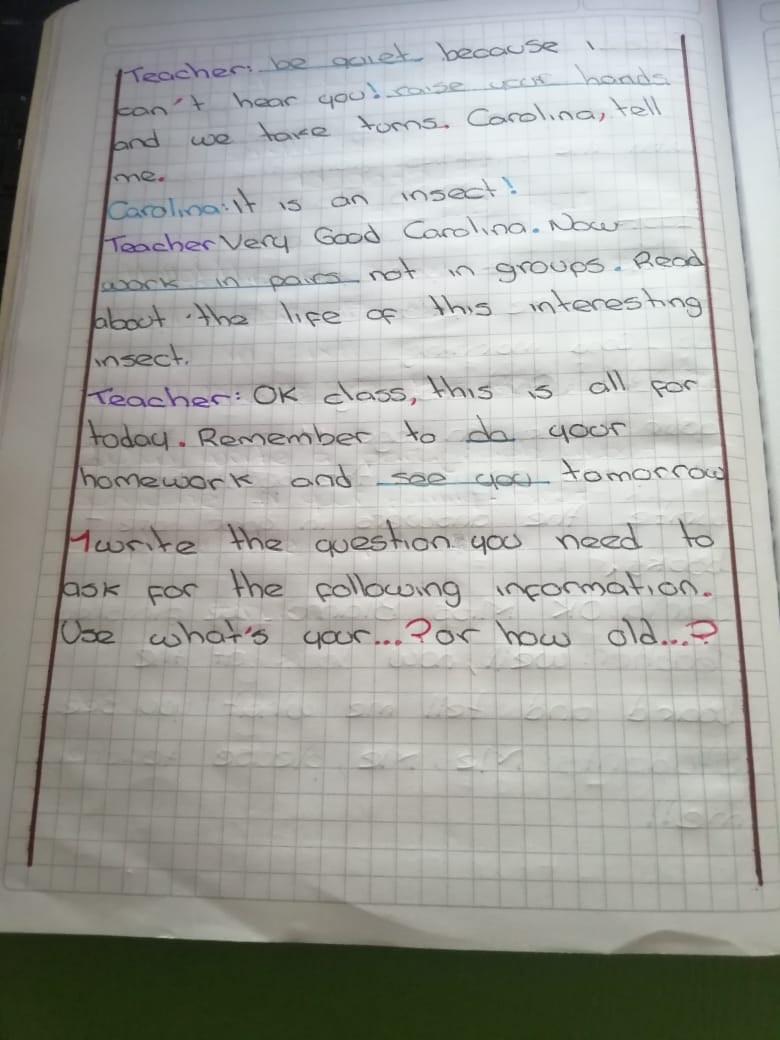 Teacher: be quiet because i
can't hear you! raise your hands
and we take torns. Carolina, tell
me.
Carolina: It is an insect!
Teacher Very Good Carolina. Now
work in pairs not in groups. Read
about the life of this interesting
insect.
Teacher: OK class, this is all for
today. Remember to do your
homework and see you tomorrow
1 write the question you need to
ask for the following information.
Use what's your...? or how old...?